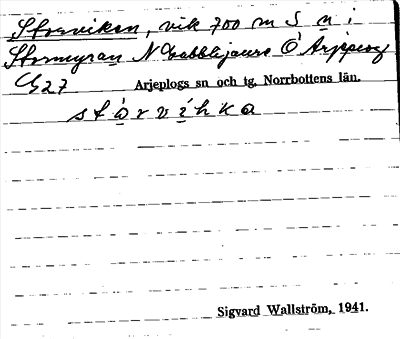 Storviken, vik 700 m S n i
Stormyran N Gabblijaure Ö Arjeplog
Cg 27 Arjeplogs sn och tg, Norrbottens län.
stȧrvihka
Sigvard Wallström, 1941.